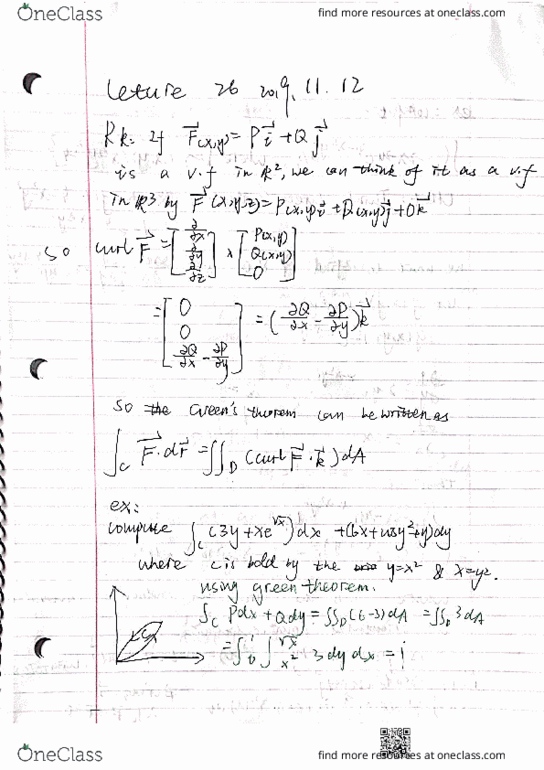 OneClass
find more resources at oneclass.com
Leture 26 2019.11.12
Rk: If F(x,y)= Pi +Qj
is a v.f in R², we can think of it as a v.f
in R³ by F(x,y,z)=P(x,y)i+Q(x,y)j+0k
so curl F = [∂/∂x ∂/∂y ∂/∂z] × [P(x,y) Q(x,y) 0]
= [0 0 ∂Q/∂x - ∂P/∂y] = (∂Q/∂x - ∂P/∂y)k
so the Green's theorem can be written as
∫C F·dr = ∫∫D (curl F·k)dA
ex:
compute ∫C (3y+xe^√x)dx +(6x+cosy²+y)dy
where C is bdd by the y=x² & x=y².
using green theorem.
∫C Pdx+Qdy = ∫∫D (6-3)dA = ∫∫D 3dA
= ∫0 1 ∫x² √x 3dydx = 1
OneClass
find more resources at oneclass.com